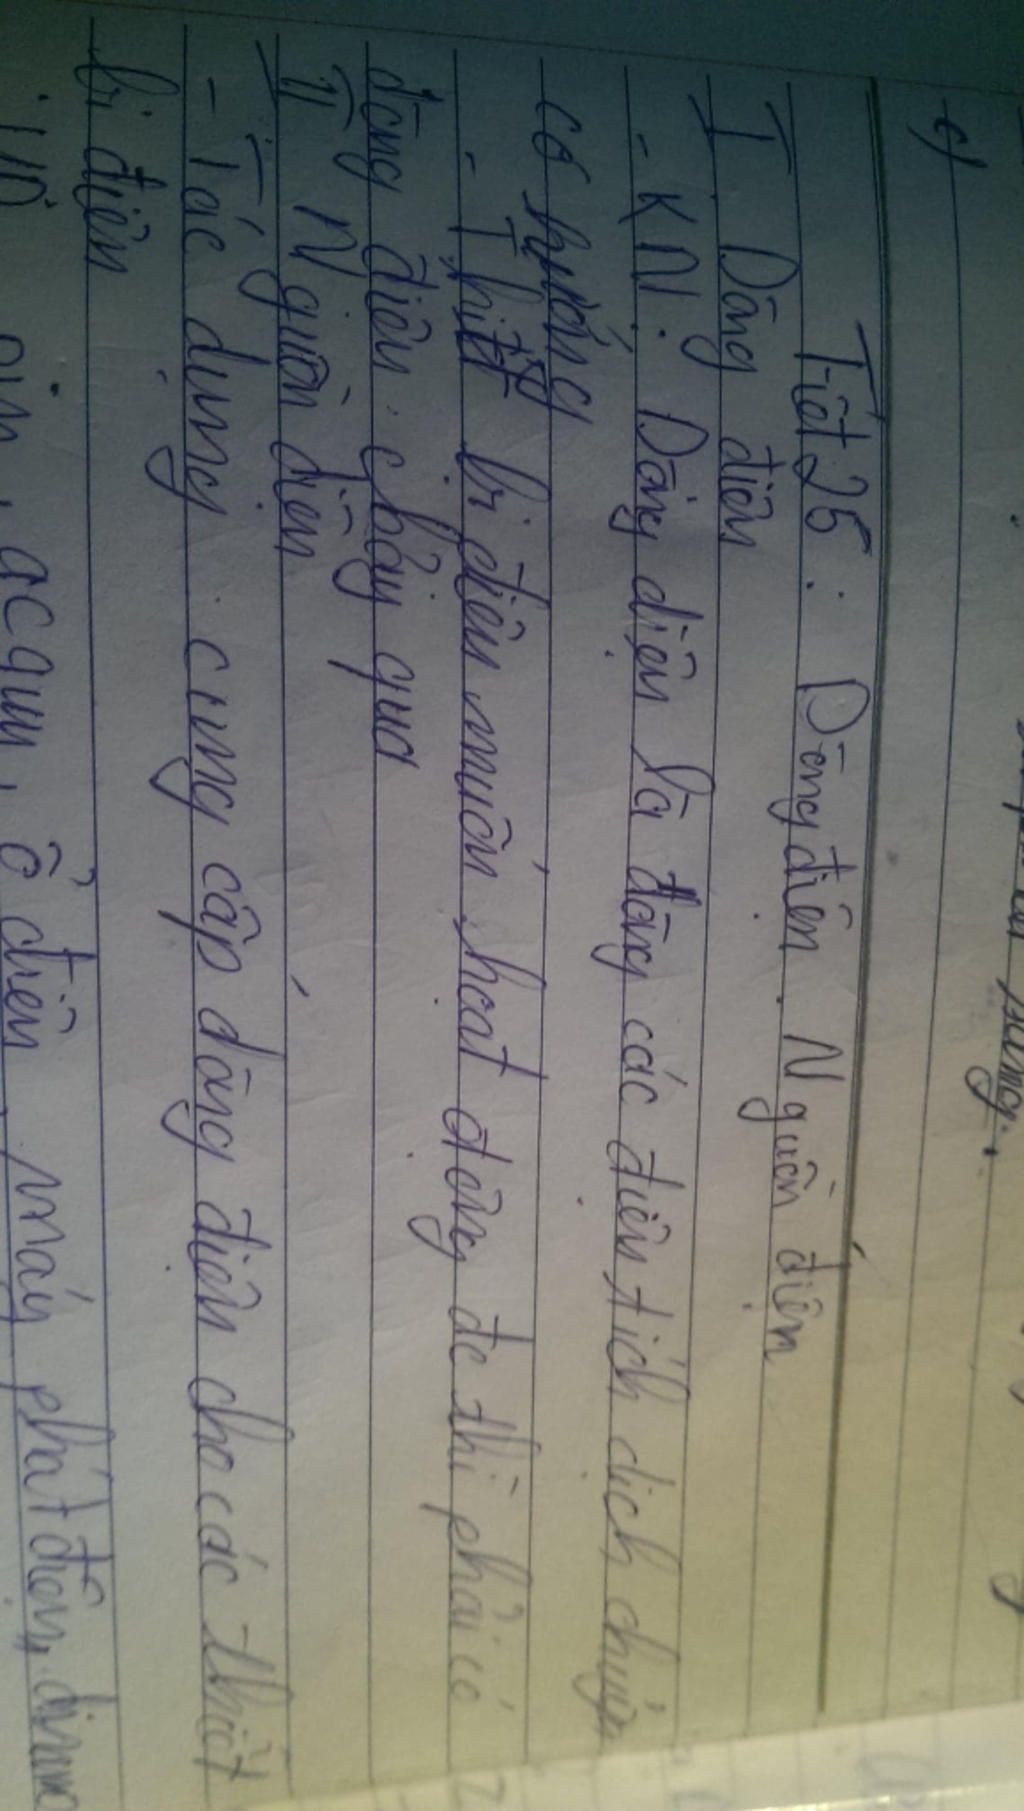 c)
Tiết 25 : Dòng điện. Nguồn điện
I Dòng điện
- KN: Dòng điện là dòng các điện tích dịch chuyển
có hướng
- Thiết bị điện muốn hoạt động đc thì phải có
dòng điện chạy qua
II Nguồn điện
- Tác dụng: cung cấp dòng điện cho các thiết
bị điện
pin, acquy, ổ điện, máy phát điện, dinamo